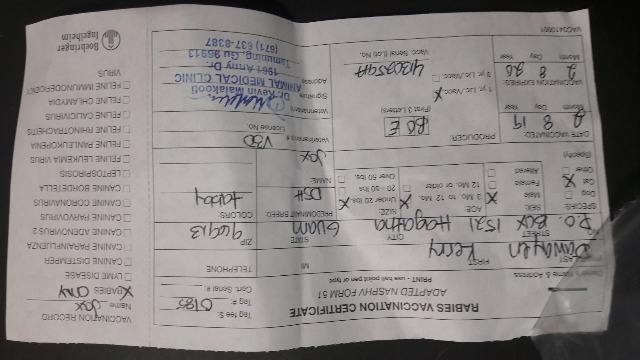 RABIES VACCINATION CERTIFICATE
ADAPTED NASPHV FORM 51
PRINT - use ball point pen or type
Tag fee $
Tag #: 0785
Cert. Serial #:
Owner's Name & Address
LAST FIRST MI TELEPHONE
Perry
STREET CITY STATE ZIP
P.O. Box 1521 Hagatna Guam 96913
SPECIES: SEX: AGE SIZE: PREDOMINANT BREED: COLORS:
Dog Male X 3 Mo. to 12 Mo. X Under 20 lbs. DSH tabby
X Cat Female 12 Mo. or older 20 - 50 lbs
Other Altered Over 50 lbs. NAME:
(Specify) Jax
DATE VACCINATED: PRODUCER: Veterinarian's # License No.
2 8 19 BOE V30
Month Day Year (First 3 Letters)
VACCINATION EXPIRES: X 1 yr. Lic./Vacc. Veterinarian's
2 8 20 3 yr. Lic./Vacc. Signature
Month Day Year Vacc. Serial (Lot) No. Address
Dr. Kevin Malakooti
ANIMAL MEDICAL CLINIC
1961 Army Dr.
Tamuning, Gu 96913
(671) 637-8387
VACCINATION RECORD
Name Jax
X RABIES only
LYME DISEASE
CANINE DISTEMPER
CANINE PARAINFLUENZA
CANINE ADENOVIRUS 2
CANINE PARVOVIRUS
CANINE CORONAVIRUS
CANINE BORDETELLA
LEPTOSPIROSIS
FELINE LEUKEMIA VIRUS
FELINE PANLEUKOPENIA
FELINE RHINOTRACHEITIS
FELINE CALICIVIRUS
FELINE CHLAMYDIA
FELINE IMMUNODEFICIENCY
VIRUS
Boehringer
Ingelheim